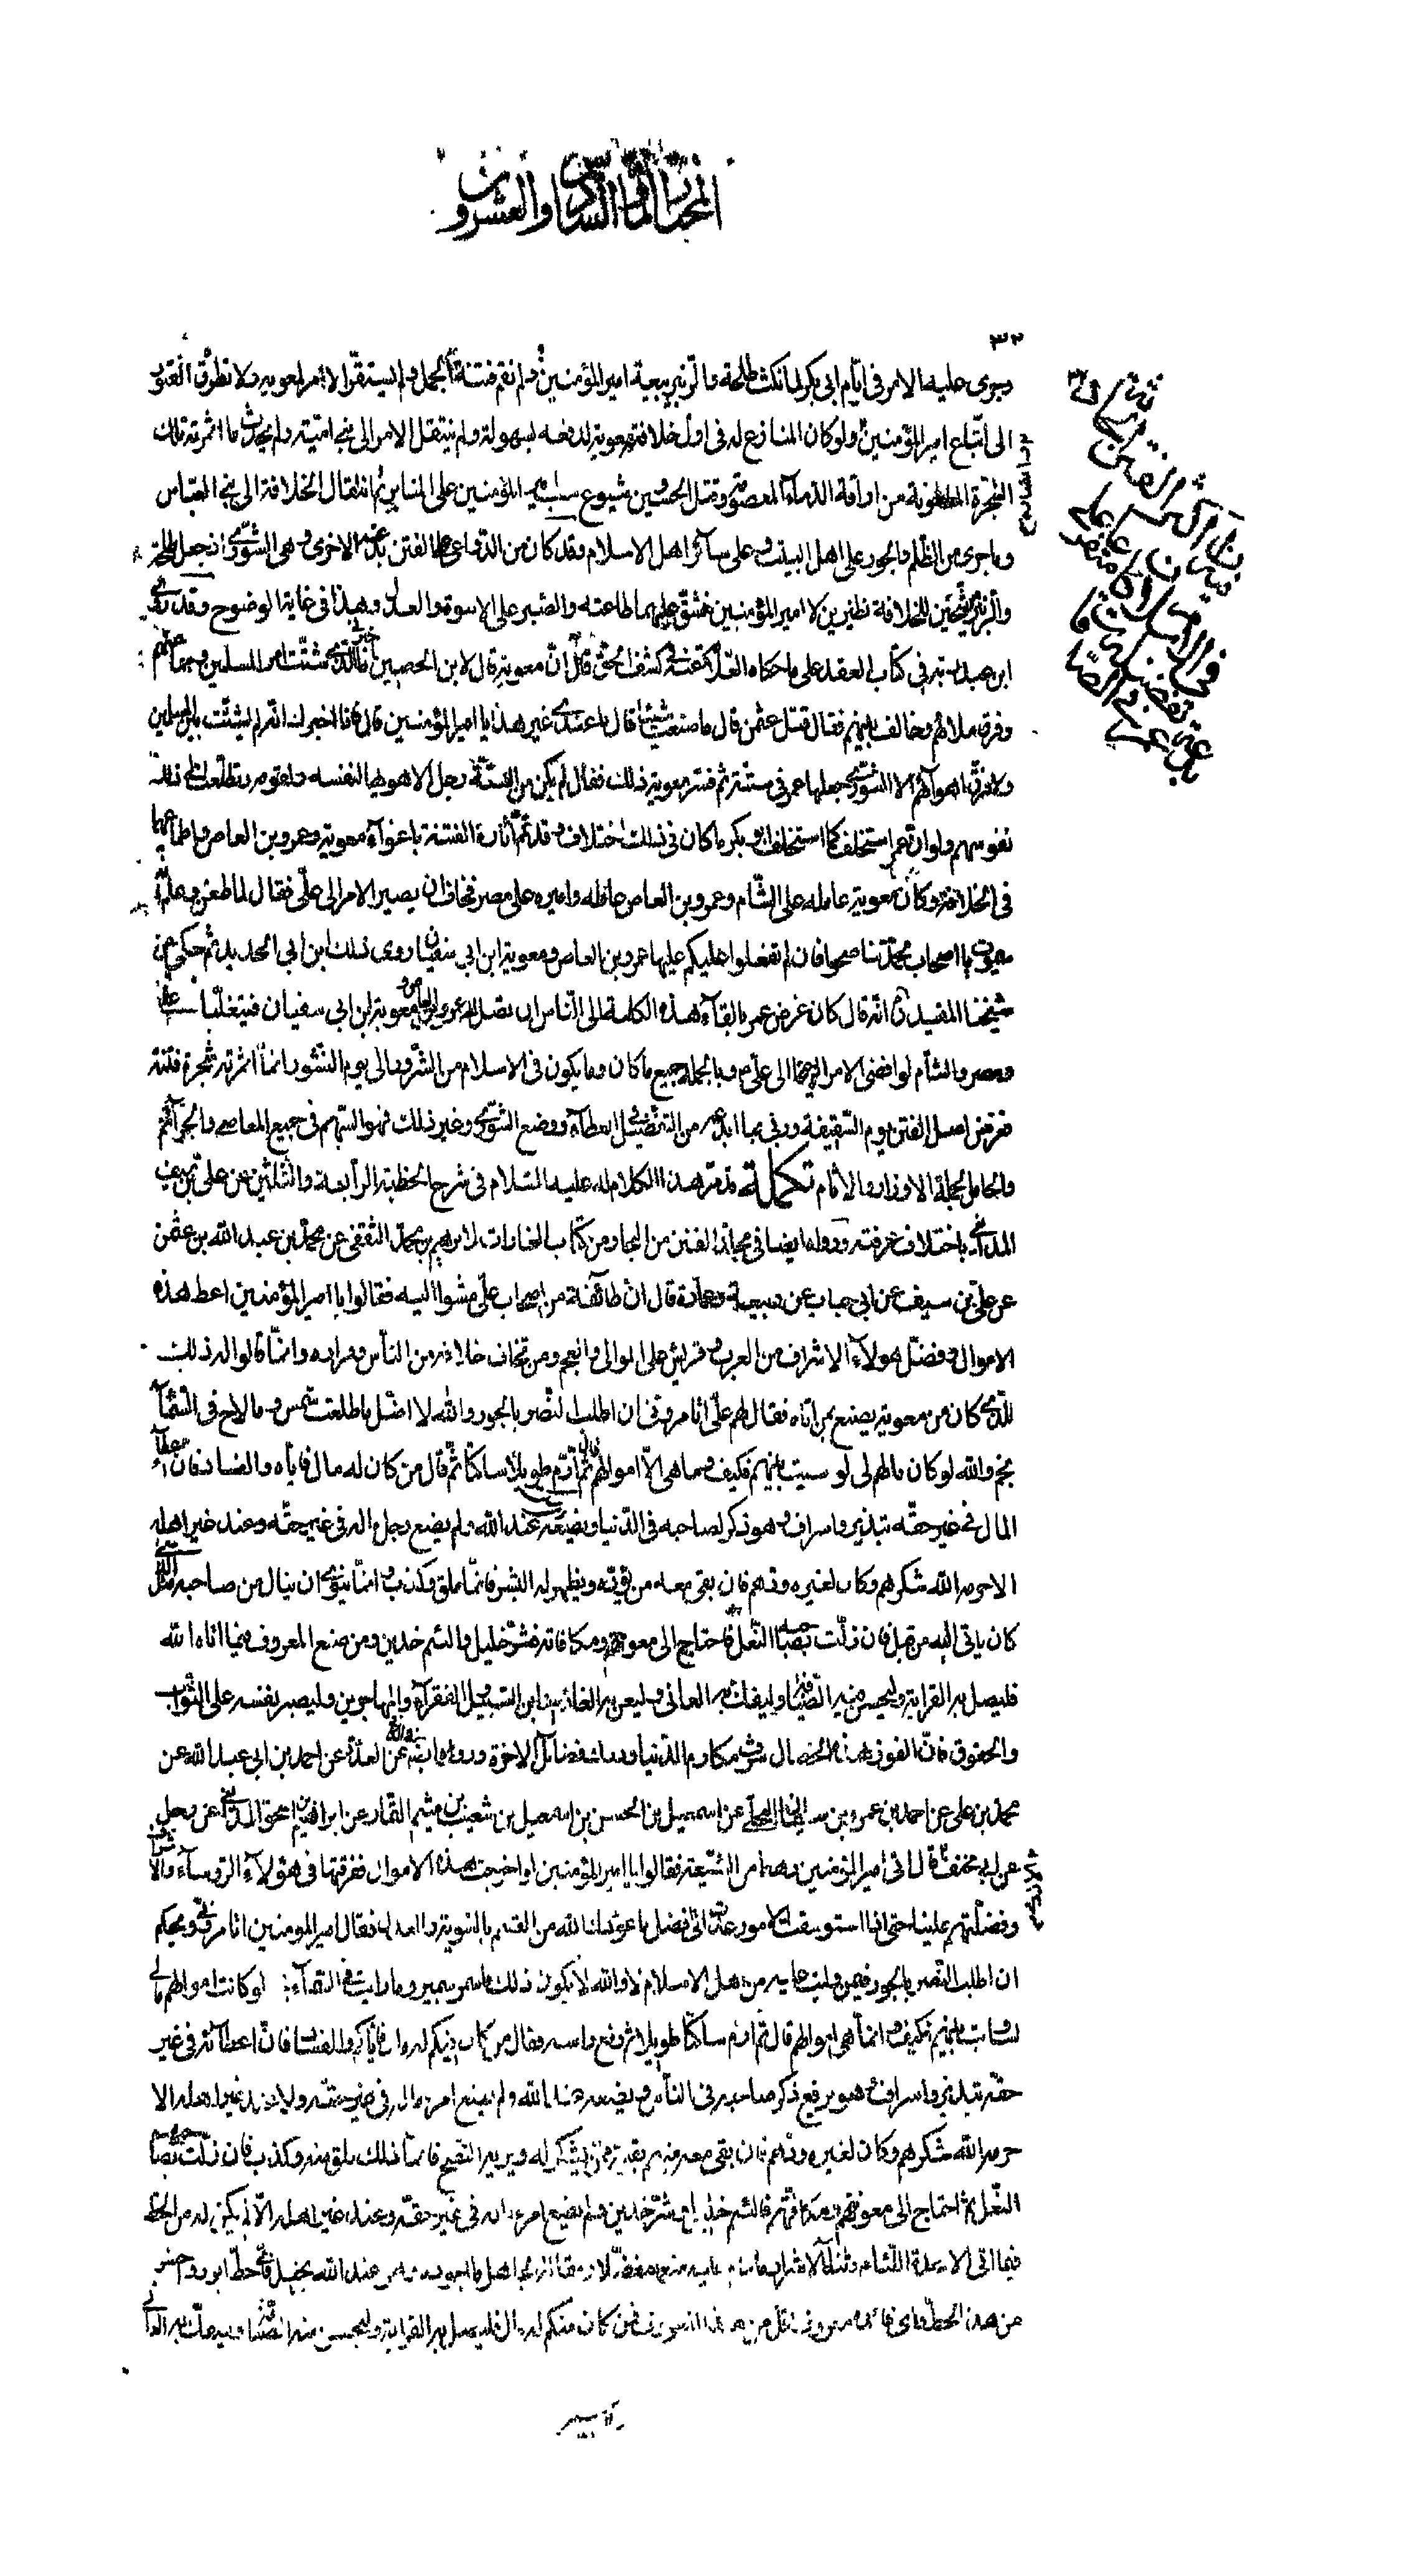 المختار المائة والسادس والعشرون
٣٢
وجرى عليه الامر في ايّام ابي بكر لما نكث طلحة والزبير بيعة امير المؤمنين ولم تقم فتنة الجمل ولم يستقرّ الامر لمعوية ولا تطرّق الفتور
الى اتّباع امير المؤمنين ولو كان المنازع له في اول خلافته معوية لدفعه بسهولة ولم ينتقل الامر الى بني اميّة ولم يحدث ما اثمرته تلك
الشجرة الملعونة من اراقة الدماء المعصومة وقتل الحسين وشيوع سبّ امير المؤمنين على المنابر ثم انتقال الخلافة الى بني العباس
وما جرى من الظلم والجور على اهل البيت وعلى سائر اهل الاسلام وقد كان من الدواعي على الفتن بدعته الاخرى وهي الشورى اذ جعل طلحة
والزبير مرشّحين للخلافة نظيرين لامير المؤمنين فشقّ عليهما طاعته والصّبر على الاسوة والعدل وهذا في غاية الوضوح وقد روى
ابن عبد ربه في كتاب العقد على ما حكاه العلامة عنه في كشف الحق قال انّ معوية قال لابن الحصين اخبرني ما الذي شتّت امر المسلمين وجماعتهم
وفرق ملاءهم وخالف بينهم فقال قتل عثمن قال ما صنعت شيئا قال ما عندي غير هذا يا امير المؤمنين قال فانا اخبرك انه لم يشتّت بين المسلمين
ولا فرّق اهوائهم الا الشورى جعلها عمر في ستة ثم فسّر معوية ذلك فقال لم يكن من الستّة رجل الا هويها لنفسه ولقومه وتطلّعت الى ذلك
نفوسهم ولو ان عمر استخلف كما استخلف ابو بكر ما كان في ذلك اختلاف وقد تمّ اثارة الفتنة باغواء معوية وعمرو بن العاص واطماعهما
في الخلافة وكان معوية عامله على الشّام وعمرو بن العاص عامله واميره على مصر فخاف ان يصير الامر الى علي فقال لما طعن وعلم انّه
يموت يا اصحاب محمد تناصحوا فان لم تفعلوا غلبكم عليها عمرو بن العاص ومعوية ابن ابي سفيان روى ذلك ابن ابي الحديد ثم حكى عن
شيخنا المفيد انّه قال كان غرض عمر بالقاء هذه الكلمة الى النّاس ان تصل الى عمرو بن العاص ومعوية بن ابي سفيان فيتغلّبا على
مصر والشام لو افضى الامر الى علي وبالجملة جميع ما كان وما يكون في الاسلام من الشّرور الى يوم النشور انما اثمرته شجرة فتنته
فغرض اصل الفتن يوم السّقيفة وربى بما ابدعه من التفضيل في العطاء ووضع الشورى وغير ذلك فهو السّهيم في جميع المعاصي والجرائم
والحامل لجملة الاوزار والاثام تكملة قد مرّ هذا الكلام له عليه السّلام في شرح الخطبة الرابعة والثلثين عن علي بن سيف
المدائني باختلاف عرفته ورواه ايضا في مجلد الفتن من البحار ومن كتاب الغارات لابراهيم بن محمد الثقفي عن محمد بن عبد الله بن عثمن
عن علي بن سيف عن ابي حباب عن ربيعة وعمارة قال ان طائفة من اصحاب علي مشوا اليه فقالوا يا امير المؤمنين اعط هذه
الاموال وفضّل هولاء الاشراف من العرب وقريش على الموالي والعجم ومن تخاف خلافه من الناس وفراره وانّما قالوا له ذلك
للّذي كان من معوية يصنع بمن اتاه فقال لهم علي اتامروني ان اطلب النّصر بالجور والله لا افعل ما طلعت شمس وما لاح في السّماء
نجم والله لو كان مالهم لي لو سيت بينهم فكيف وما هي الّا اموالهم قال ثم ازم طويلا ساكتا ثم قال من كان له مال فاياه والفساد فان اعطاء
المال في غير حقه تبذير واسراف وهو ذكر لصاحبه في الدّنيا ويضيعه عند الله ولم يضع رجل ماله في غير حقّه وعند غير اهله
الا حرمه الله شكرهم وكان لغيره ودّهم فان بقي معه من يودّه ويظهر له البشر فانّما ملق وكذب وانما ينوي ان ينال من صاحبه مثل الذي
كان ياتي اليه من قبل فان زلّت بصاحبه النّعل فاحتاج الى معونته ومكافاته فشرّ خليل والئم خدين ومن صنع المعروف فيما اتاه الله
فليصل به القرابة وليحسن منه الضّيافة وليفك به العاني وليعن به الغارم وابن السبيل والفقراء والمهاجرين وليصبر نفسه على النوائب
والحقوق فانّ الفوز بهذه الخصال شرف مكارم الدّنيا ودرك فضائل الاخرة ورواه ايضا عن العدّة عن احمد بن ابي عبد الله عن
محمد بن علي عن احمد بن عمرو بن سليمان البجلي عن اسمعيل بن الحسن بن اسمعيل بن شعيب بن ميثم التمّار عن ابراهيم بن اسحق المدائني عن رجل
عن ابي مخنف قال اتى امير المؤمنين رهط من الشّيعة فقالوا يا امير المؤمنين لو اخرجت هذه الاموال ففرقتها في هؤلاء الرؤساء والاشراف
وفضّلتهم علينا حتى اذا استوسقت الامور عدت الى افضل ما عوّدك الله من القسم بالسّوية والعدل فقال امير المؤمنين اتامروني ويحكم
ان اطلب النّصر بالجور فيمن وليت عليه من اهل الاسلام لا والله لا يكون ذلك ما سمر سمير وما رايت في السّماء نجما لو كانت اموالهم مالي
لساويت بينهم فكيف وانما هي اموالهم قال ثم ازم ساكتا طويلا ثم رفع راسه فقال من كان فيكم له مال فاياكم والفساد فانّ اعطائه في غير
حقّه تبذير واسراف وهو يرفع ذكر صاحبه في الناس ويضعه عند الله ولم يضع امرء ماله في غير حقّه ولا عند غير اهله الا
حرمه الله شكرهم وكان لغيره ودّهم فان بقي معه منهم بقية ممن يظهر الشكر له ويريه النصح فانما ذلك ملق منه وكذب فان زلّت بصاحبهم
النّعل ثم احتاج الى معونتهم ومكافاتهم فالئم خليل وشرّ خدين ولم يضع امرء ماله في غير حقّه وعند غير اهله الّا لم يكن له من الحظ
فيما اتى الا محمدة اللّئام وثناء الاشرار ما دام عليه منعما مفضّلا ومقالة الجاهل ما اجوده وهو عند الله بخيل فاي حظّ ابور واخسر
من هذا الحظّ واي فائدة معروف اقل من هذا المعروف فمن كان منكم له مال فليصل به القرابة وليحسن منه الضّيافة وليفكّ به العاني